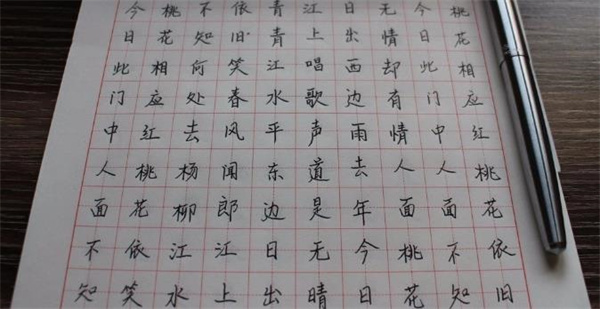 桃花相应红桃花依旧
今日此门中人面不知
无情却有情人面桃花
日出西边雨去年今日
江上唱歌声道是无晴
青青江水平东边日出
依旧笑春风闻郎江上
不知何处去杨柳江水
桃花相应红桃花依笑
今日此门中人面不知